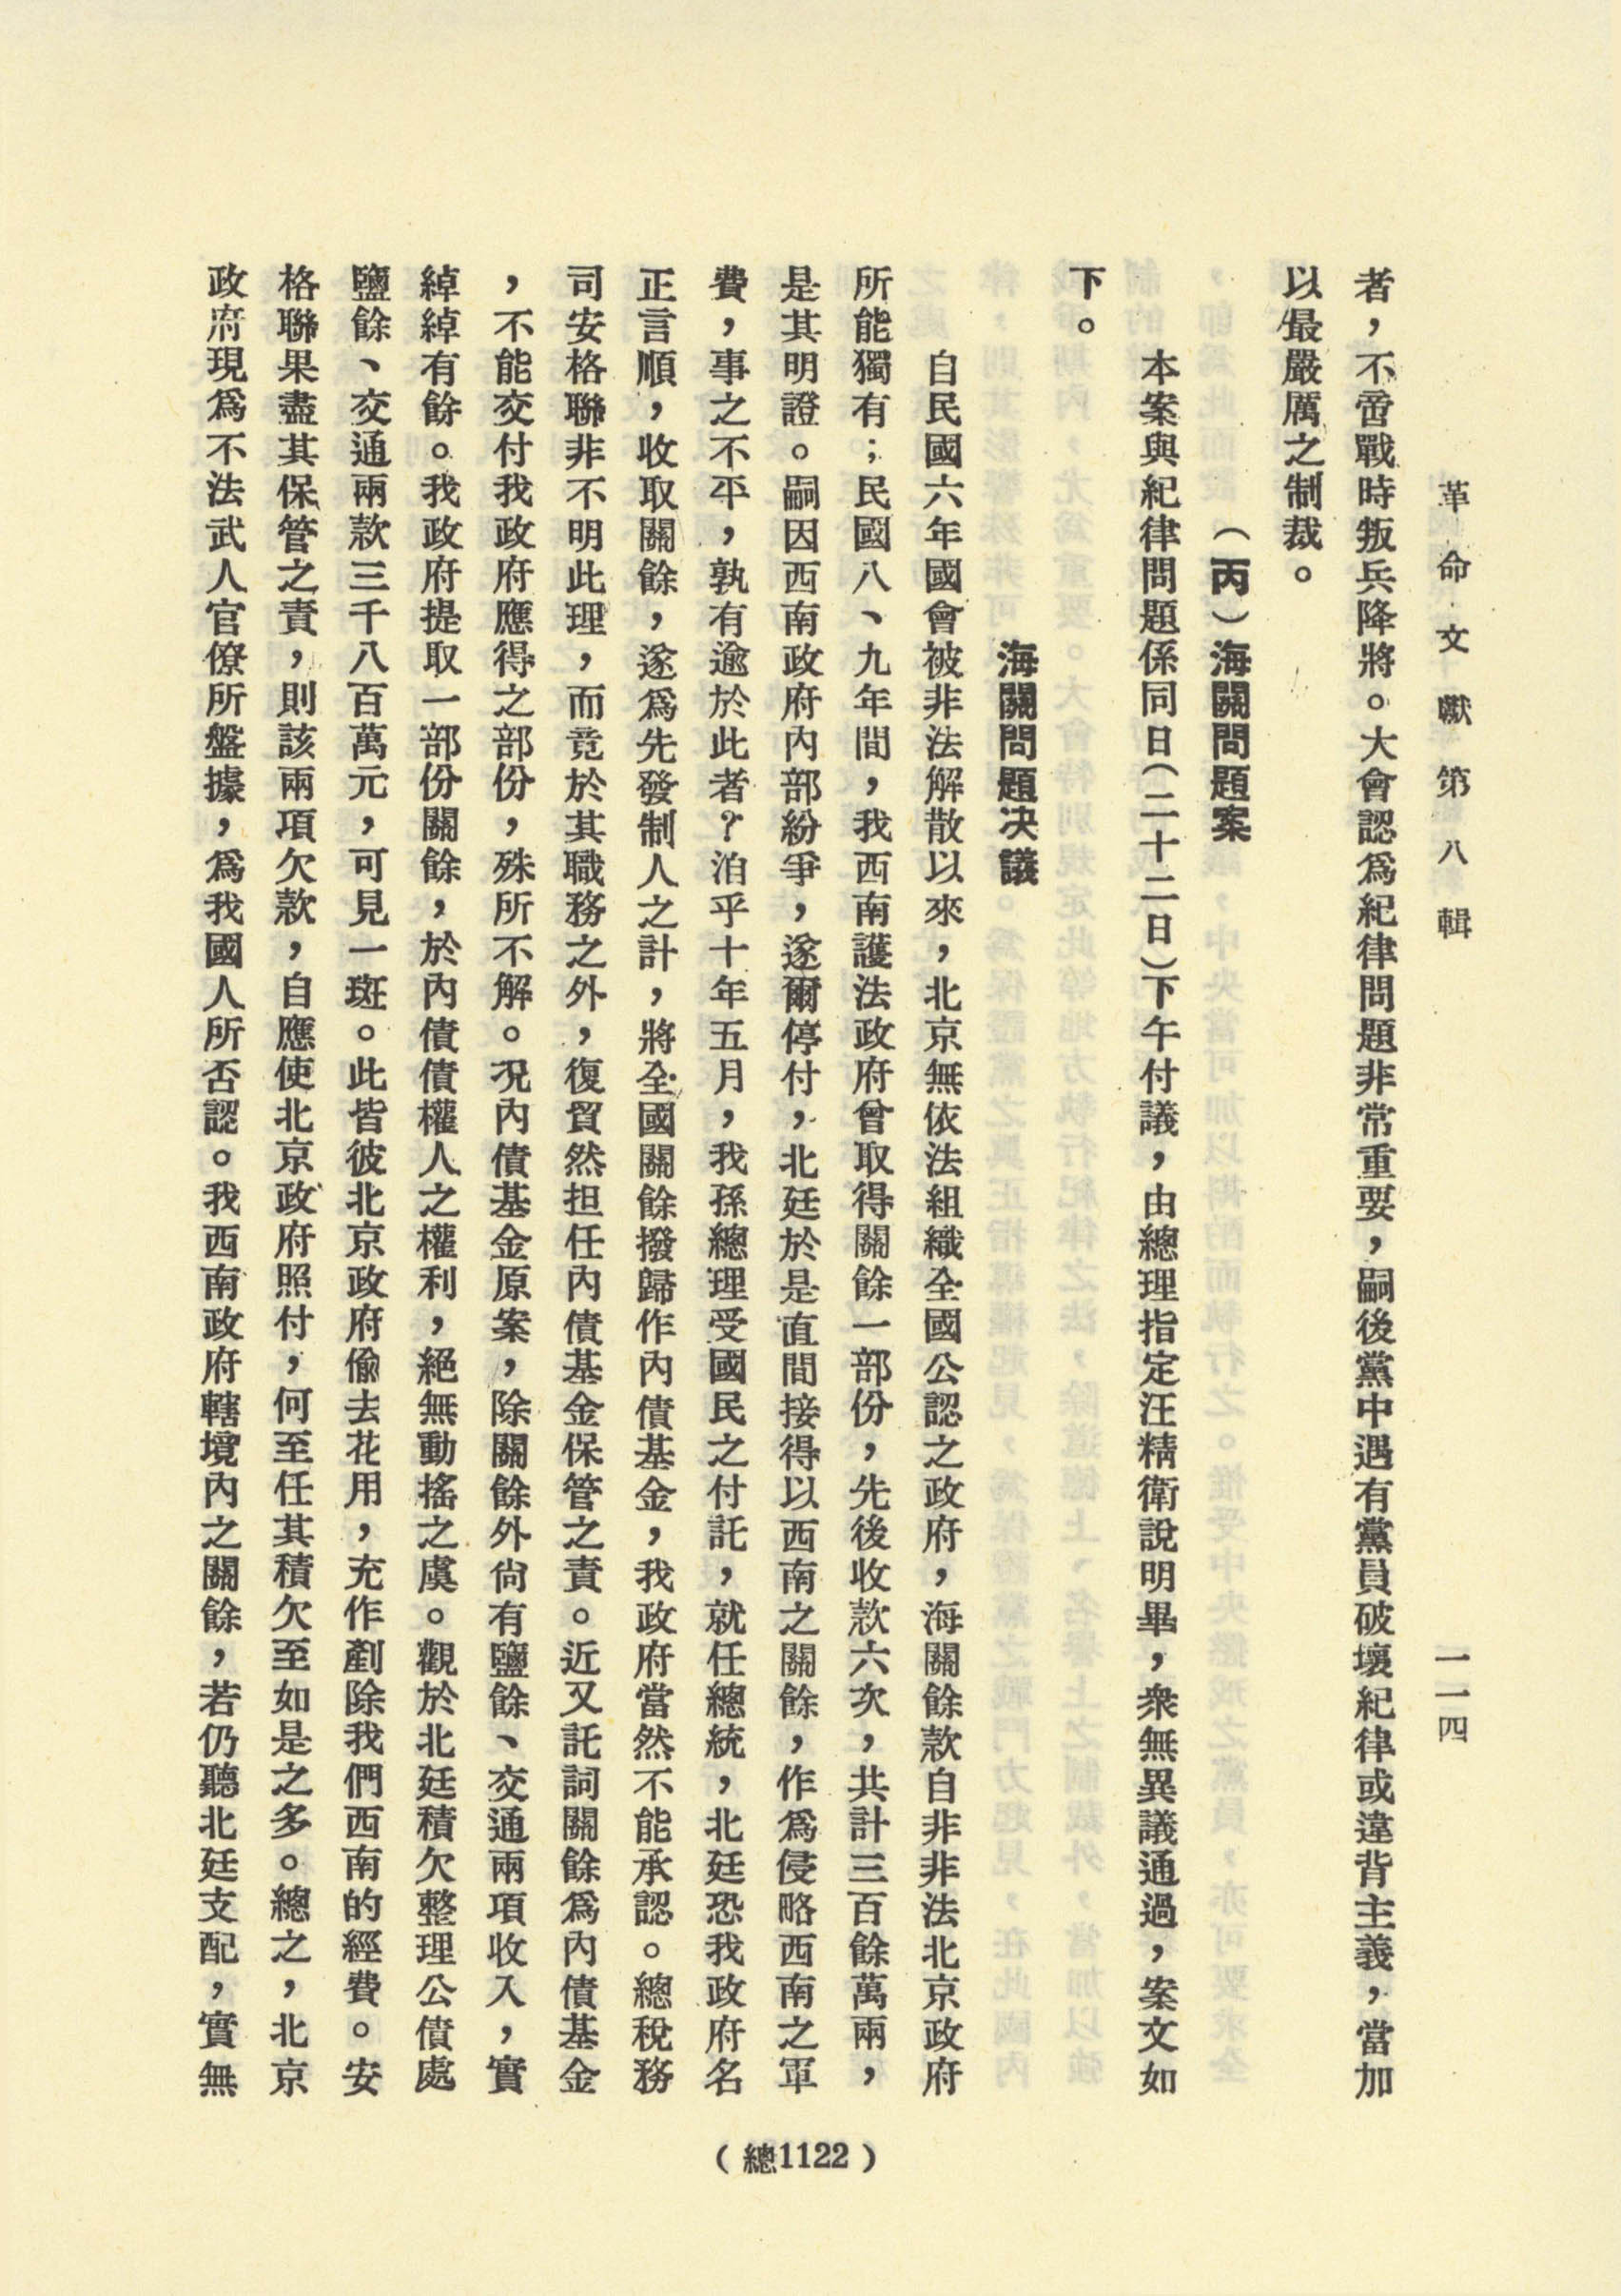 革命文獻第八輯
一一四
者，不啻戰時叛兵降將。大會認爲紀律問題非常重要，嗣後黨中遇有黨員破壞紀律或違背主義，當加
以最嚴厲之制裁。
（丙）海關問題案
本案與紀律問題係同日（二十二日）下午付議，由總理指定汪精衛說明畢，衆無異議通過，案文如
下。
海關問題決議
自民國六年國會被非法解散以來，北京無依法組織全國公認之政府，海關餘款自非非法北京政府
所能獨有；民國八、九年間，我西南護法政府曾取得關餘一部份，先後收款六次，共計三百餘萬兩，
是其明證。嗣因西南政府內部紛爭，遂爾停付，北廷於是直間接得以西南之關餘，作爲侵略西南之軍
費，事之不平，孰有逾於此者？洎乎十年五月，我孫總理受國民之付託，就任總統，北廷恐我政府名
正言順，收取關餘，遂爲先發制人之計，將全國關餘撥歸作內債基金，我政府當然不能承認。總稅務
司安格聯非不明此理，而竟於其職務之外，復貿然担任內債基金保管之責。近又託詞關餘爲內債基金
，不能交付我政府應得之部份，殊所不解。况內債基金原案，除關餘外尙有鹽餘、交通兩項收入，實
綽綽有餘。我政府提取一部份關餘，於內債債權人之權利，絕無動搖之虞。觀於北廷積欠整理公債處
鹽餘、交通兩款三千八百萬元，可見一斑。此皆彼北京政府偷去花用，充作剷除我們西南的經費。安
格聯果盡其保管之責，則該兩項欠款，自應使北京政府照付，何至任其積欠至如是之多。總之，北京
政府現爲不法武人官僚所盤據，爲我國人所否認。我西南政府轄境內之關餘，若仍聽北廷支配，實無
（總1122）